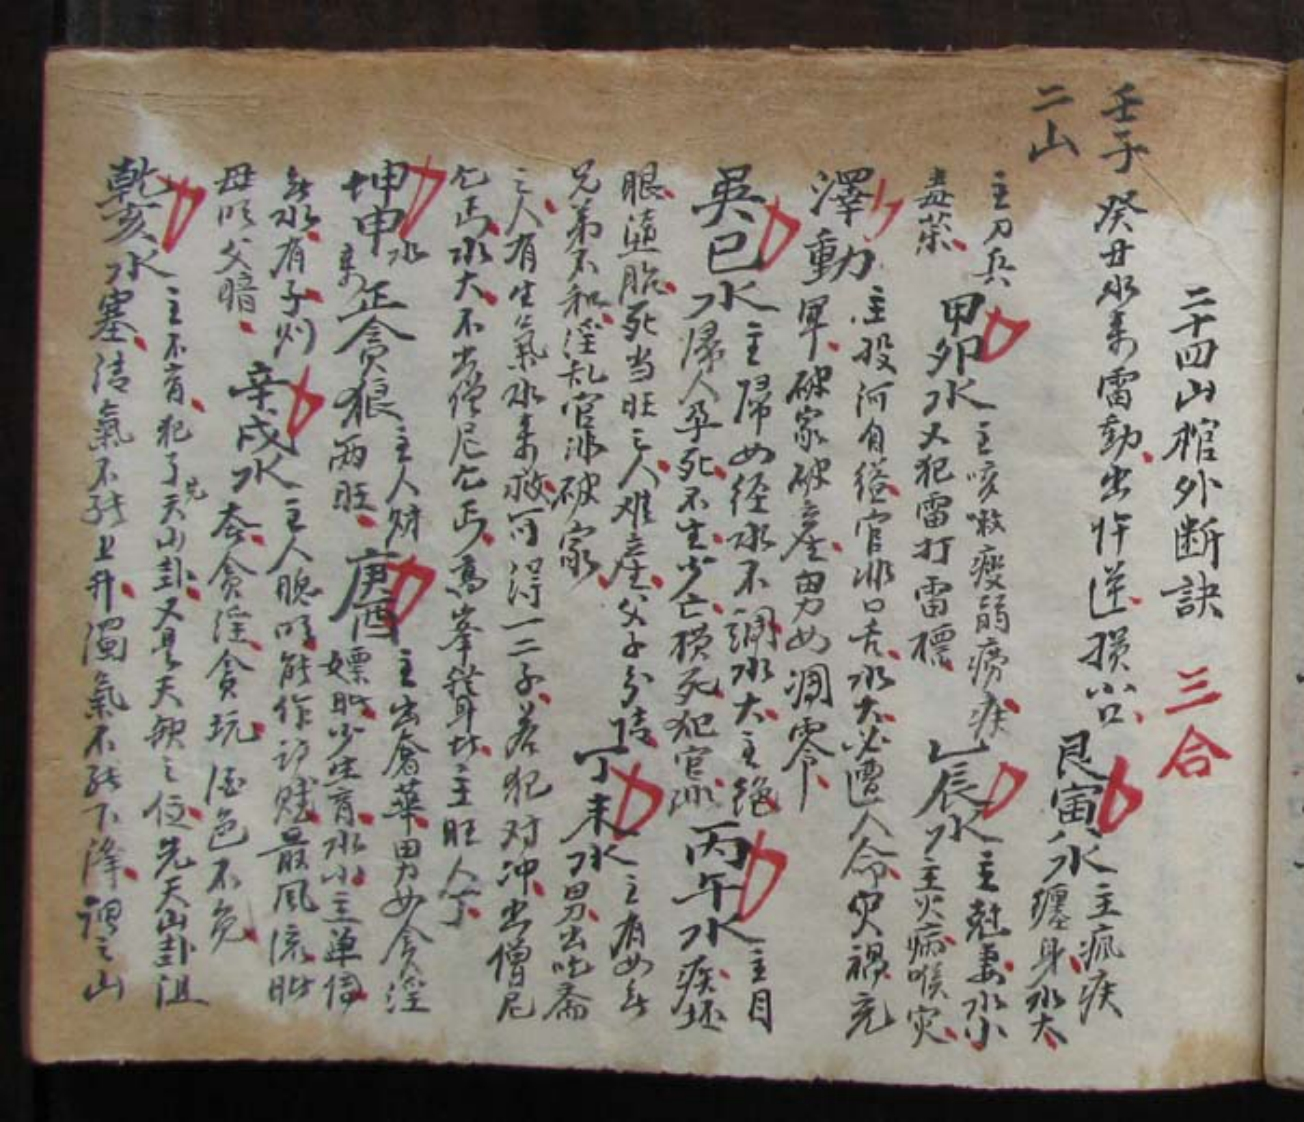 二十四山棺外断訣 三合
壬子 癸丑水来雷動出忤逆損小口 艮寅水 主瘋疾
二山 纏身水大
主刀兵 甲卯水 主咳嗽瘦弱癆疾 乙辰水 主尅妻水小
毒藥 又犯雷打雷標 主火病喉灾
澤動 主投河自縊官非口舌水大必遭人命灾禍充
軍破家破產男女凋零
吳巳水 主婦女经水不調水大主绝 丙午水 主目
婦人孕死不生少亡横死犯官非 疾坯
眼墮胎死当旺之人难產父子分 丁未水 主有女無
兄弟不和淫乱官非破家 男出吃斋
之人有生氣水来救可得一二子若犯对冲出僧尼
乞丐水大不出僧尼乞丐高峯 主旺人丁
坤申水来正貪狼 主人财两旺 庚酉 主出奢華男女貪淫
無水有子 嫖 少生育水小主単傳
辛戌水 主人聰明能作詩赋最風流
母明父暗 貪淫貪玩酒色不免
乾亥水 主不育犯了先天山卦又是天 之位先天山卦沮
塞清氣不能上升濁氣不能下降謂之山